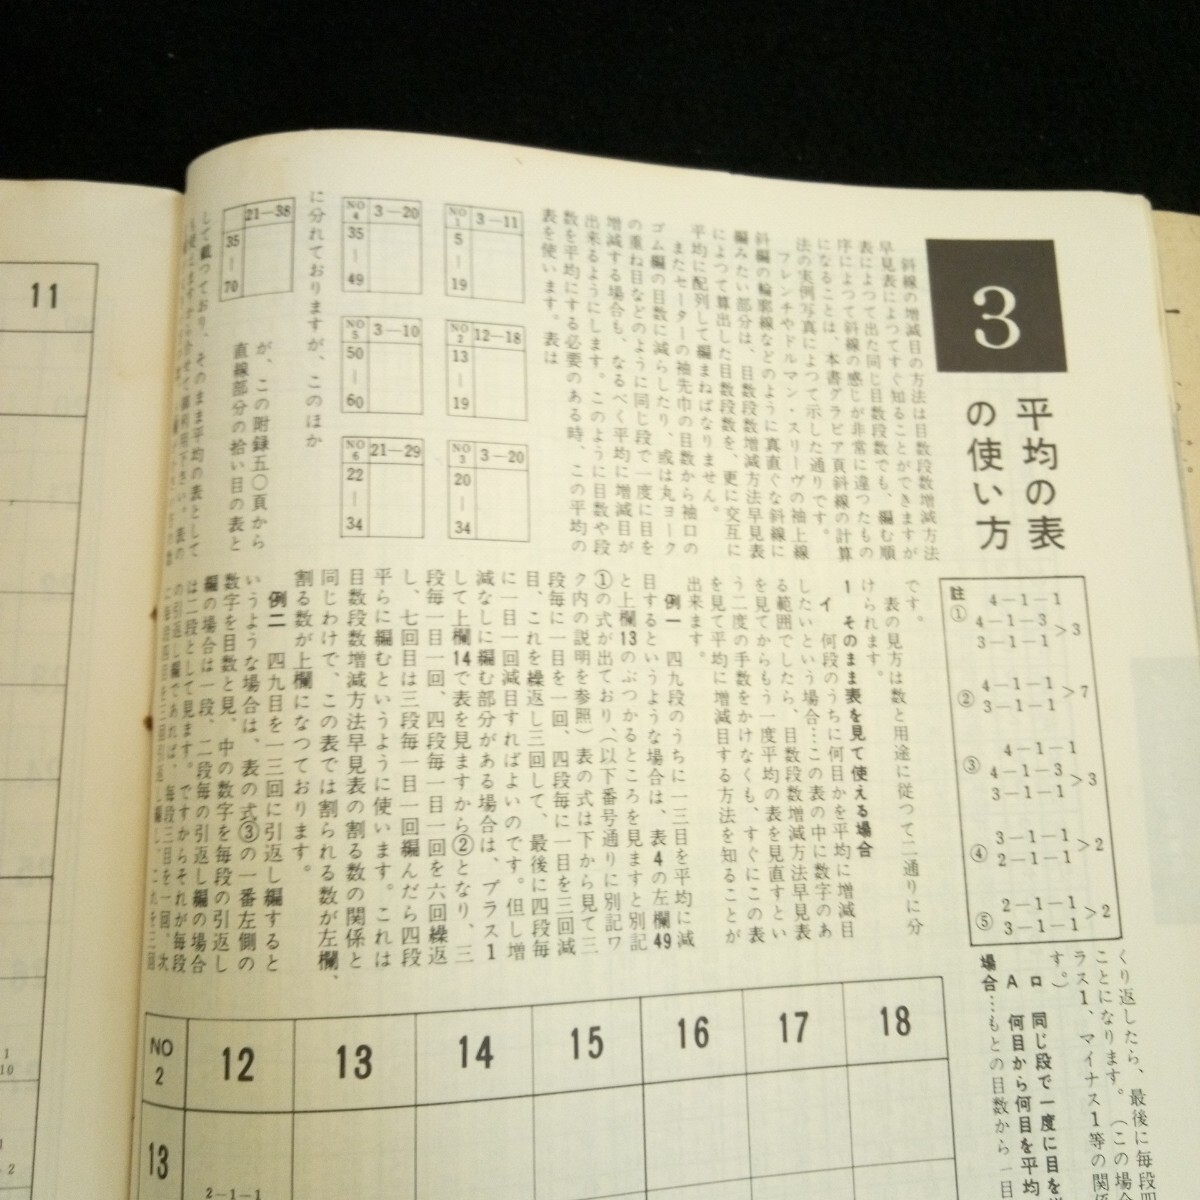 3
平均の表
の使い方
斜線の増減目の方法は目数段数増減方法
早見表によつてすぐ知ることができますが
表によつて出た同じ目数段数でも、編む順
序によつて斜線の感じが非常に違つたもの
になることは、本書グラビア頁斜線の計算
法の実例写真によつて示した通りです。
フレンチやドルマン・スリーヴの袖上線
斜編の輪廓線などのように真直ぐな斜線に
編みたい部分は、目数段数増減方法早見表
によつて算出した目数段数を、更に交互に
平均に配列して編まねばなりません。
またセーターの袖先巾の目数から袖口の
ゴム編の目数に減らしたり、或は丸ヨーク
の重ね目などのように同じ段で一度に目を
増減する場合も、なるべく平均に増減目が
出来るようにします。このように目数や段
数を平均にする必要のある時、この平均の
表を使います。表は
NO 1
3—11
5
|
19
NO 2
12—18
13
|
19
NO 3
3—20
20
|
34
NO 4
3—20
35
|
49
NO 5
3—10
50
|
60
NO 6
21—29
22
|
34
に分れておりますが、このほか
21—38
35
|
70
が、この附録五〇頁から
直線部分の拾い目の表と
して載つており、そのまま平均の表として
註
① 4—1—1
4—1—3
3—1—1
>3
② 4—1—1
3—1—1
>7
③ 4—1—1
4—1—3
3—1—1
>3
④ 3—1—1
2—1—1
>2
⑤ 2—1—1
3—1—1
>2
です。
表の見方は数と用途に従つて二通りに分
けられます。
1 そのまま表を見て使える場合
イ 何段のうちに何目かを平均に増減目
したいという場合…この表の中に数字のあ
る範囲でしたら、目数段数増減方法早見表
を見てからもう一度平均の表を見直すとい
う二度の手数をかけなくも、すぐにこの表
を見て平均に増減目する方法を知ることが
出来ます。
例一 四九段のうちに一三目を平均に減
目するというような場合は、表4の左欄49
と上欄13のぶつかるところを見ますと別記
①の式が出ており、(以下番号通りに別記ワ
ク内の説明を参照)表の式は下から見て三
段毎に一目を一回、四段毎に一目を三回減
目、これを繰返し三回して、最後に四段毎
に一目一回減目すればよいのです。但し増
減なしに編む部分がある場合は、プラス1
して上欄14で表を見ますから②となり、三
段毎一目一回、四段毎一目一回を六回繰返
し、七回目は三段毎一目一回編んだら四段
平らに編むというように使います。これは
目数段数増減方法早見表の割る数の関係と
同じわけで、この表では割られる数が左欄、
割る数が上欄になつております。
例二 四九目を一三回に引返し編すると
いうような場合は、表の式③の一番左側の
数字を目数と見、中の数字を毎段の引返し
編の場合は一段、二段毎の引返し編の場合
は二段として見ます。ですからそれが毎段
の引返し編であれば、毎段三目を一回、次
くり返したら、最後に毎段四
ことになります。(この場合
ラス1、マイナス1等の関係
す。)
ロ 同じ段で一度に目を
A 何目から何目を平均
場合…もとの目数から一目
NO 2
12
13
14
15
16
17
18
13
2—1—1
11